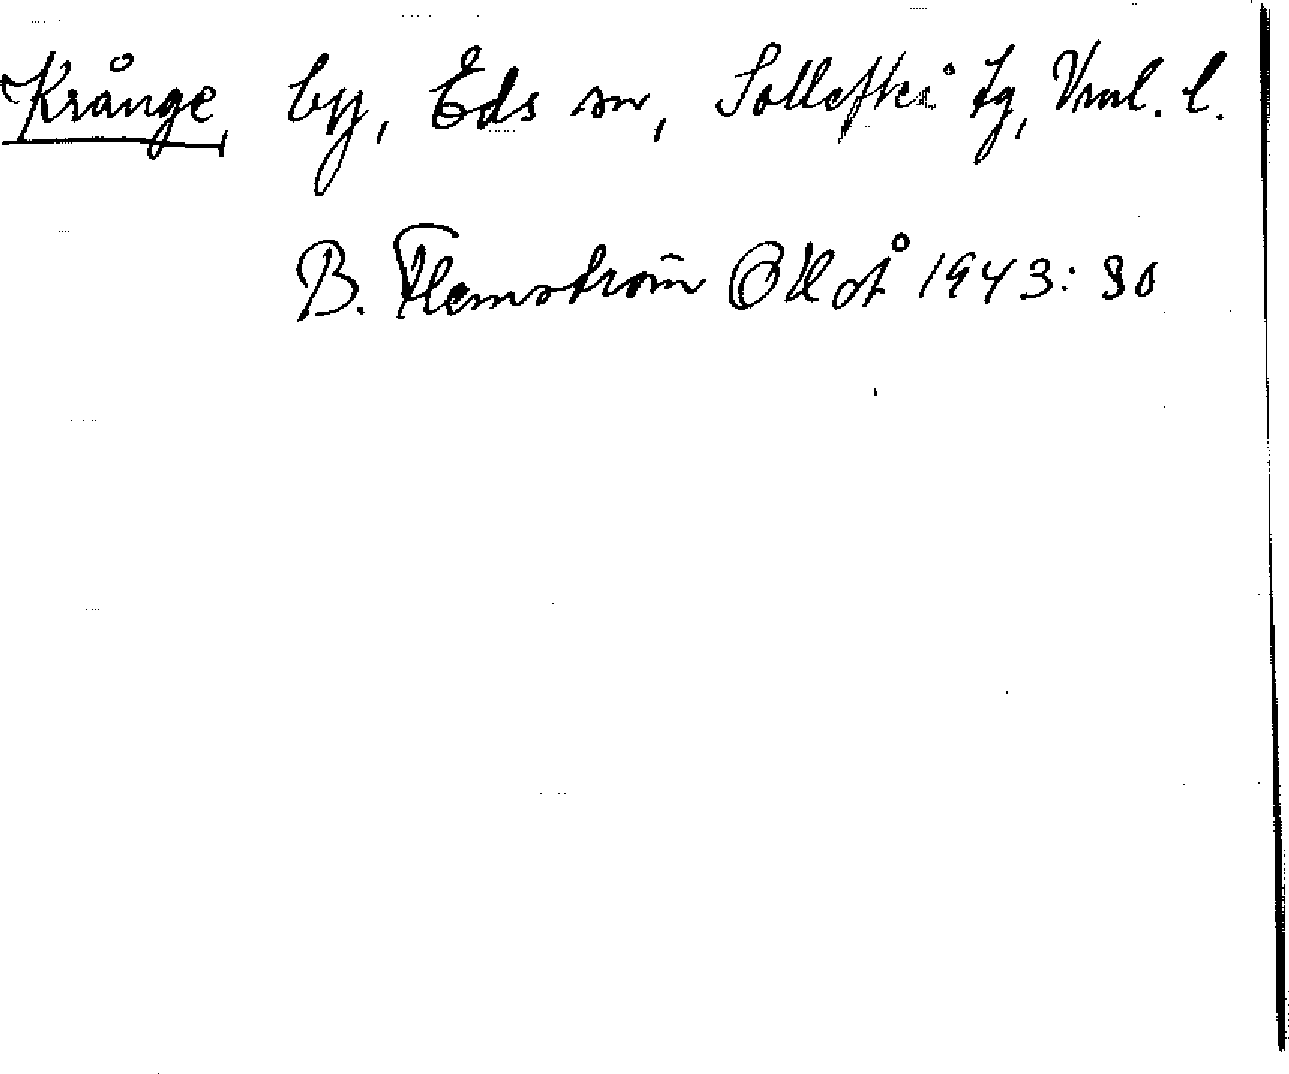 Krånge, by, Eds sn, Sollefteå tg, Vnl. l.
B. Flemström OHOÅ 1943: 30